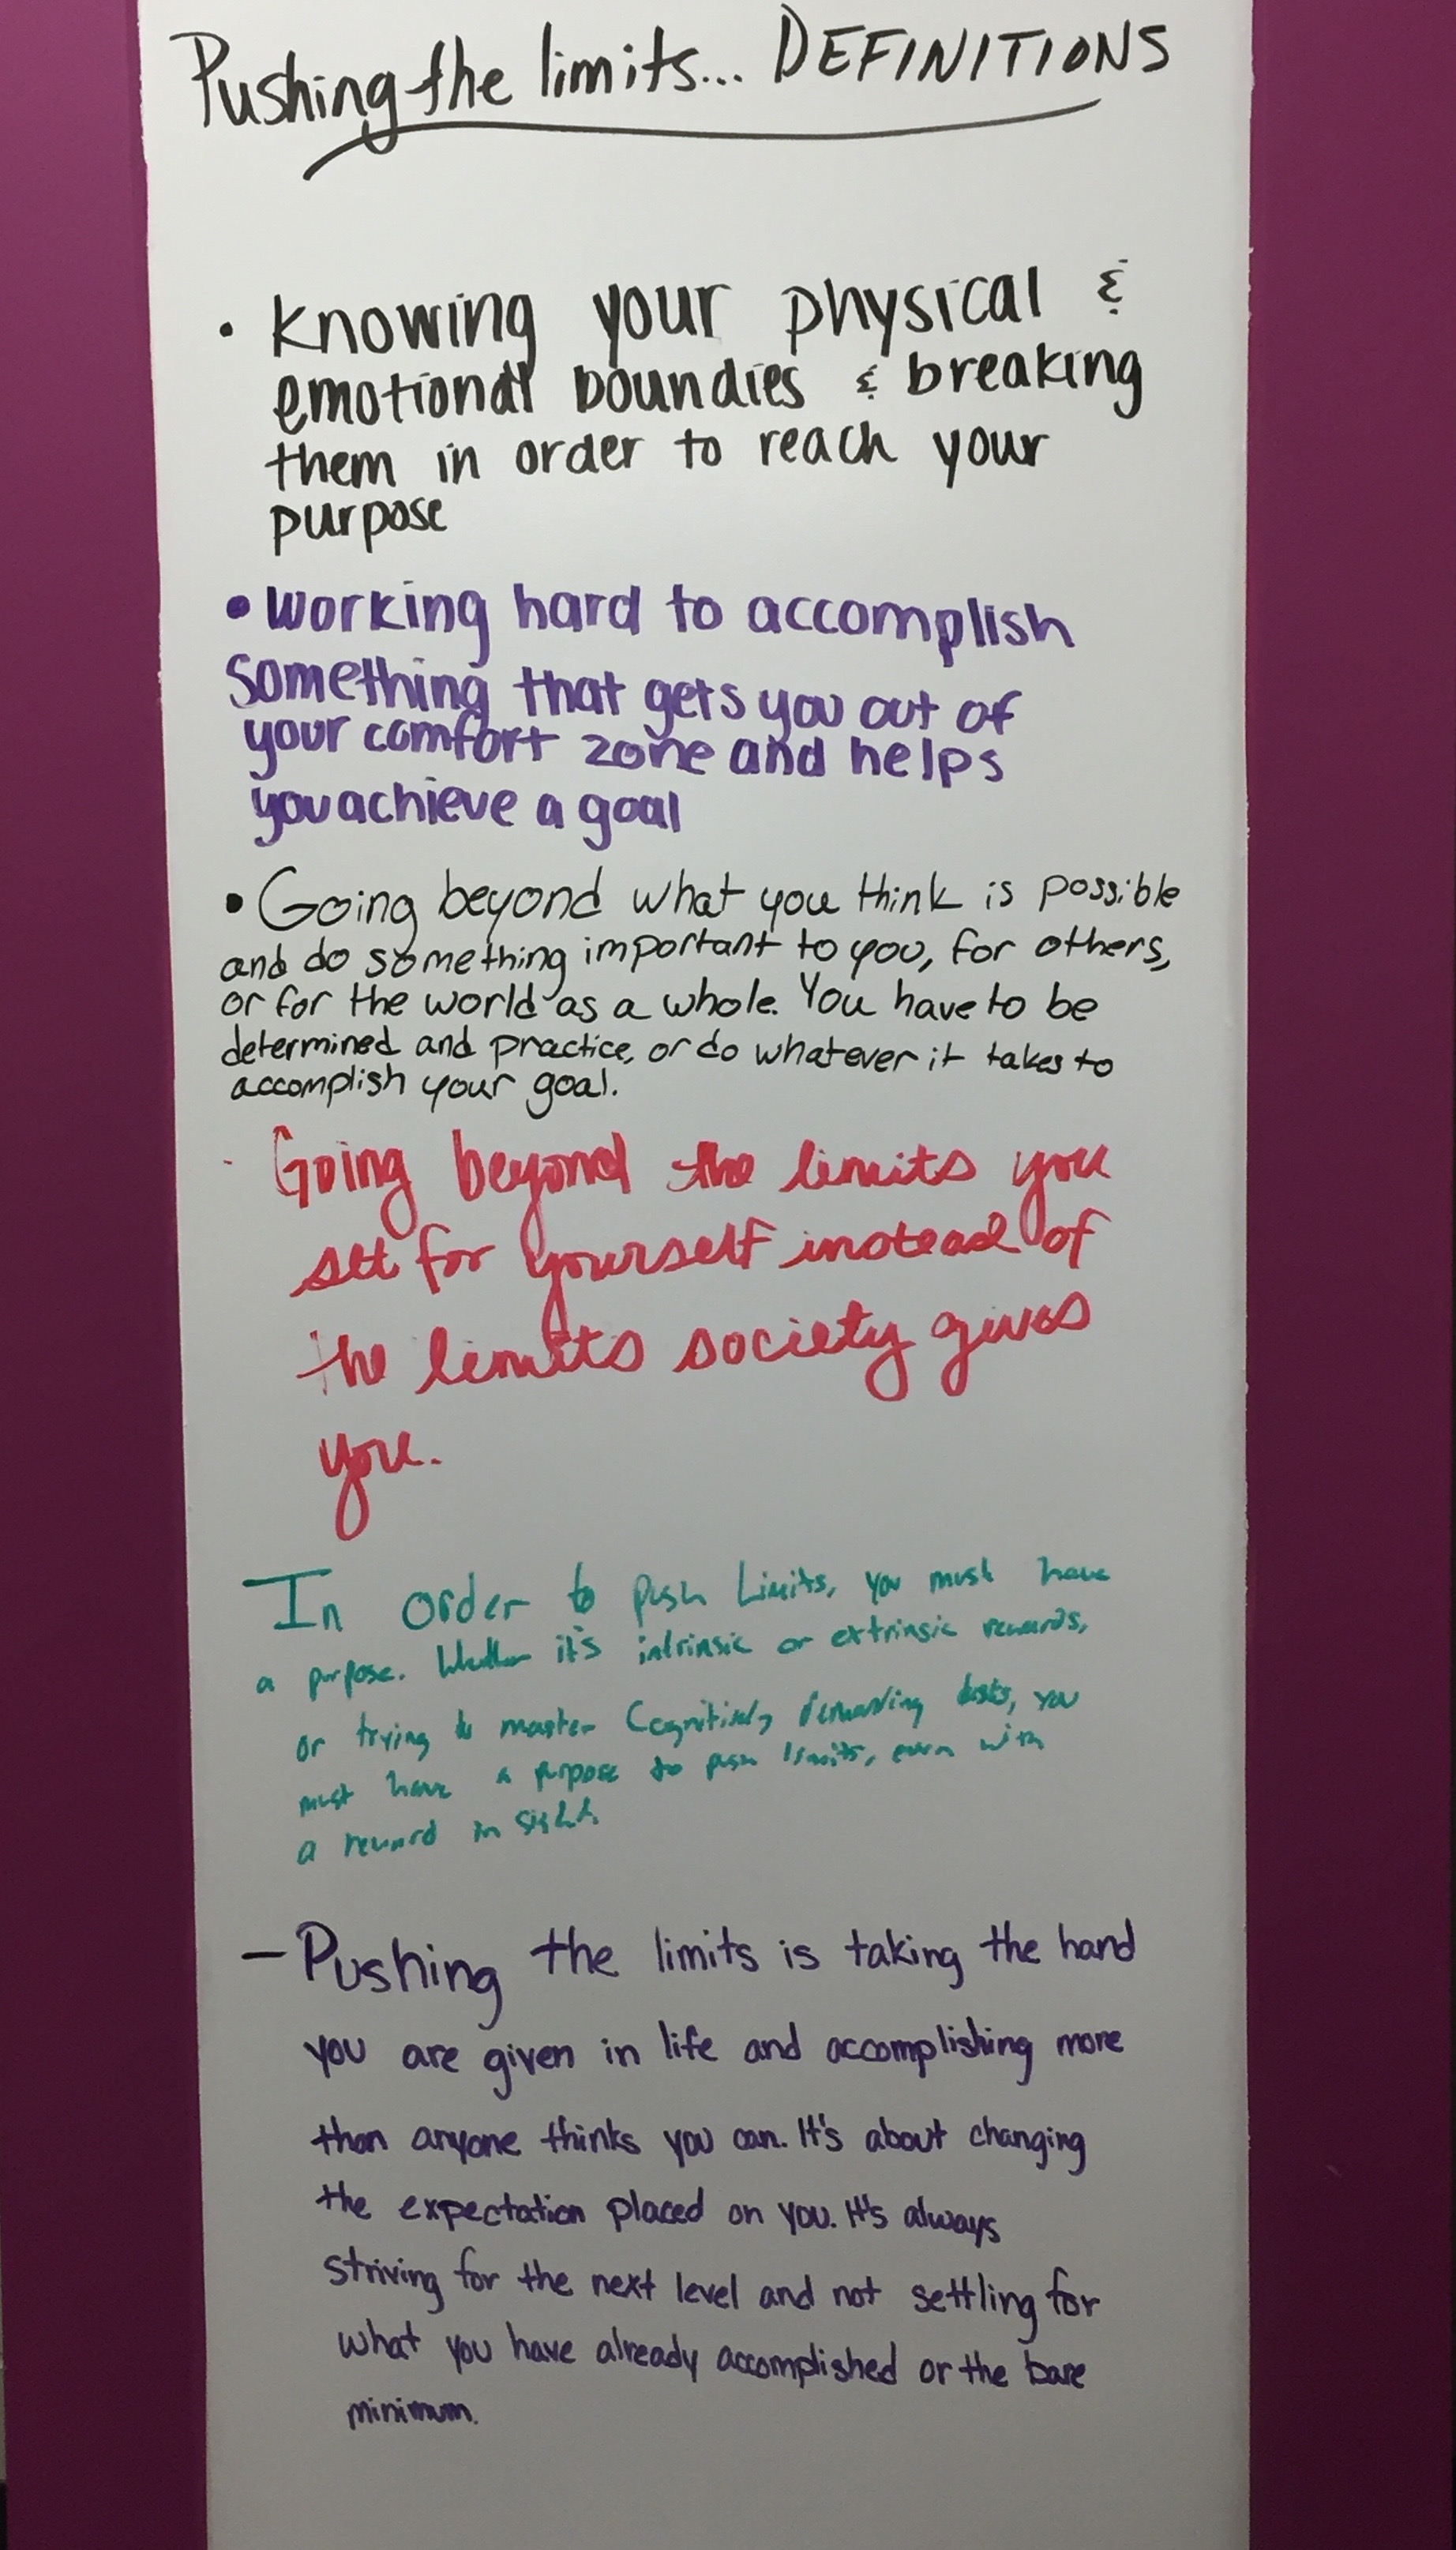 Pushing the limits... DEFINITIONS
• Knowing your physical &
emotional boundies & breaking
them in order to reach your
purpose
• Working hard to accomplish
something that gets you out of
your comfort zone and helps
you achieve a goal
• Going beyond what you think is possible
and do something important to you, for others,
or for the world as a whole. You have to be
determined and practice, or do whatever it takes to
accomplish your goal.
- Going beyond the limits you
set for yourself instead of
the limits society gives
you.
In order to push Limits, you must have
a purpose. Whether it's intrinsic or extrinsic rewards,
or trying to master Cognitively demanding tasks, you
must have a purpose to push limits, even with
a reward in sight
- Pushing the limits is taking the hand
you are given in life and accomplishing more
than anyone thinks you can. It's about changing
the expectation placed on you. It's always
striving for the next level and not settling for
what you have already accomplished or the bare
minimum.